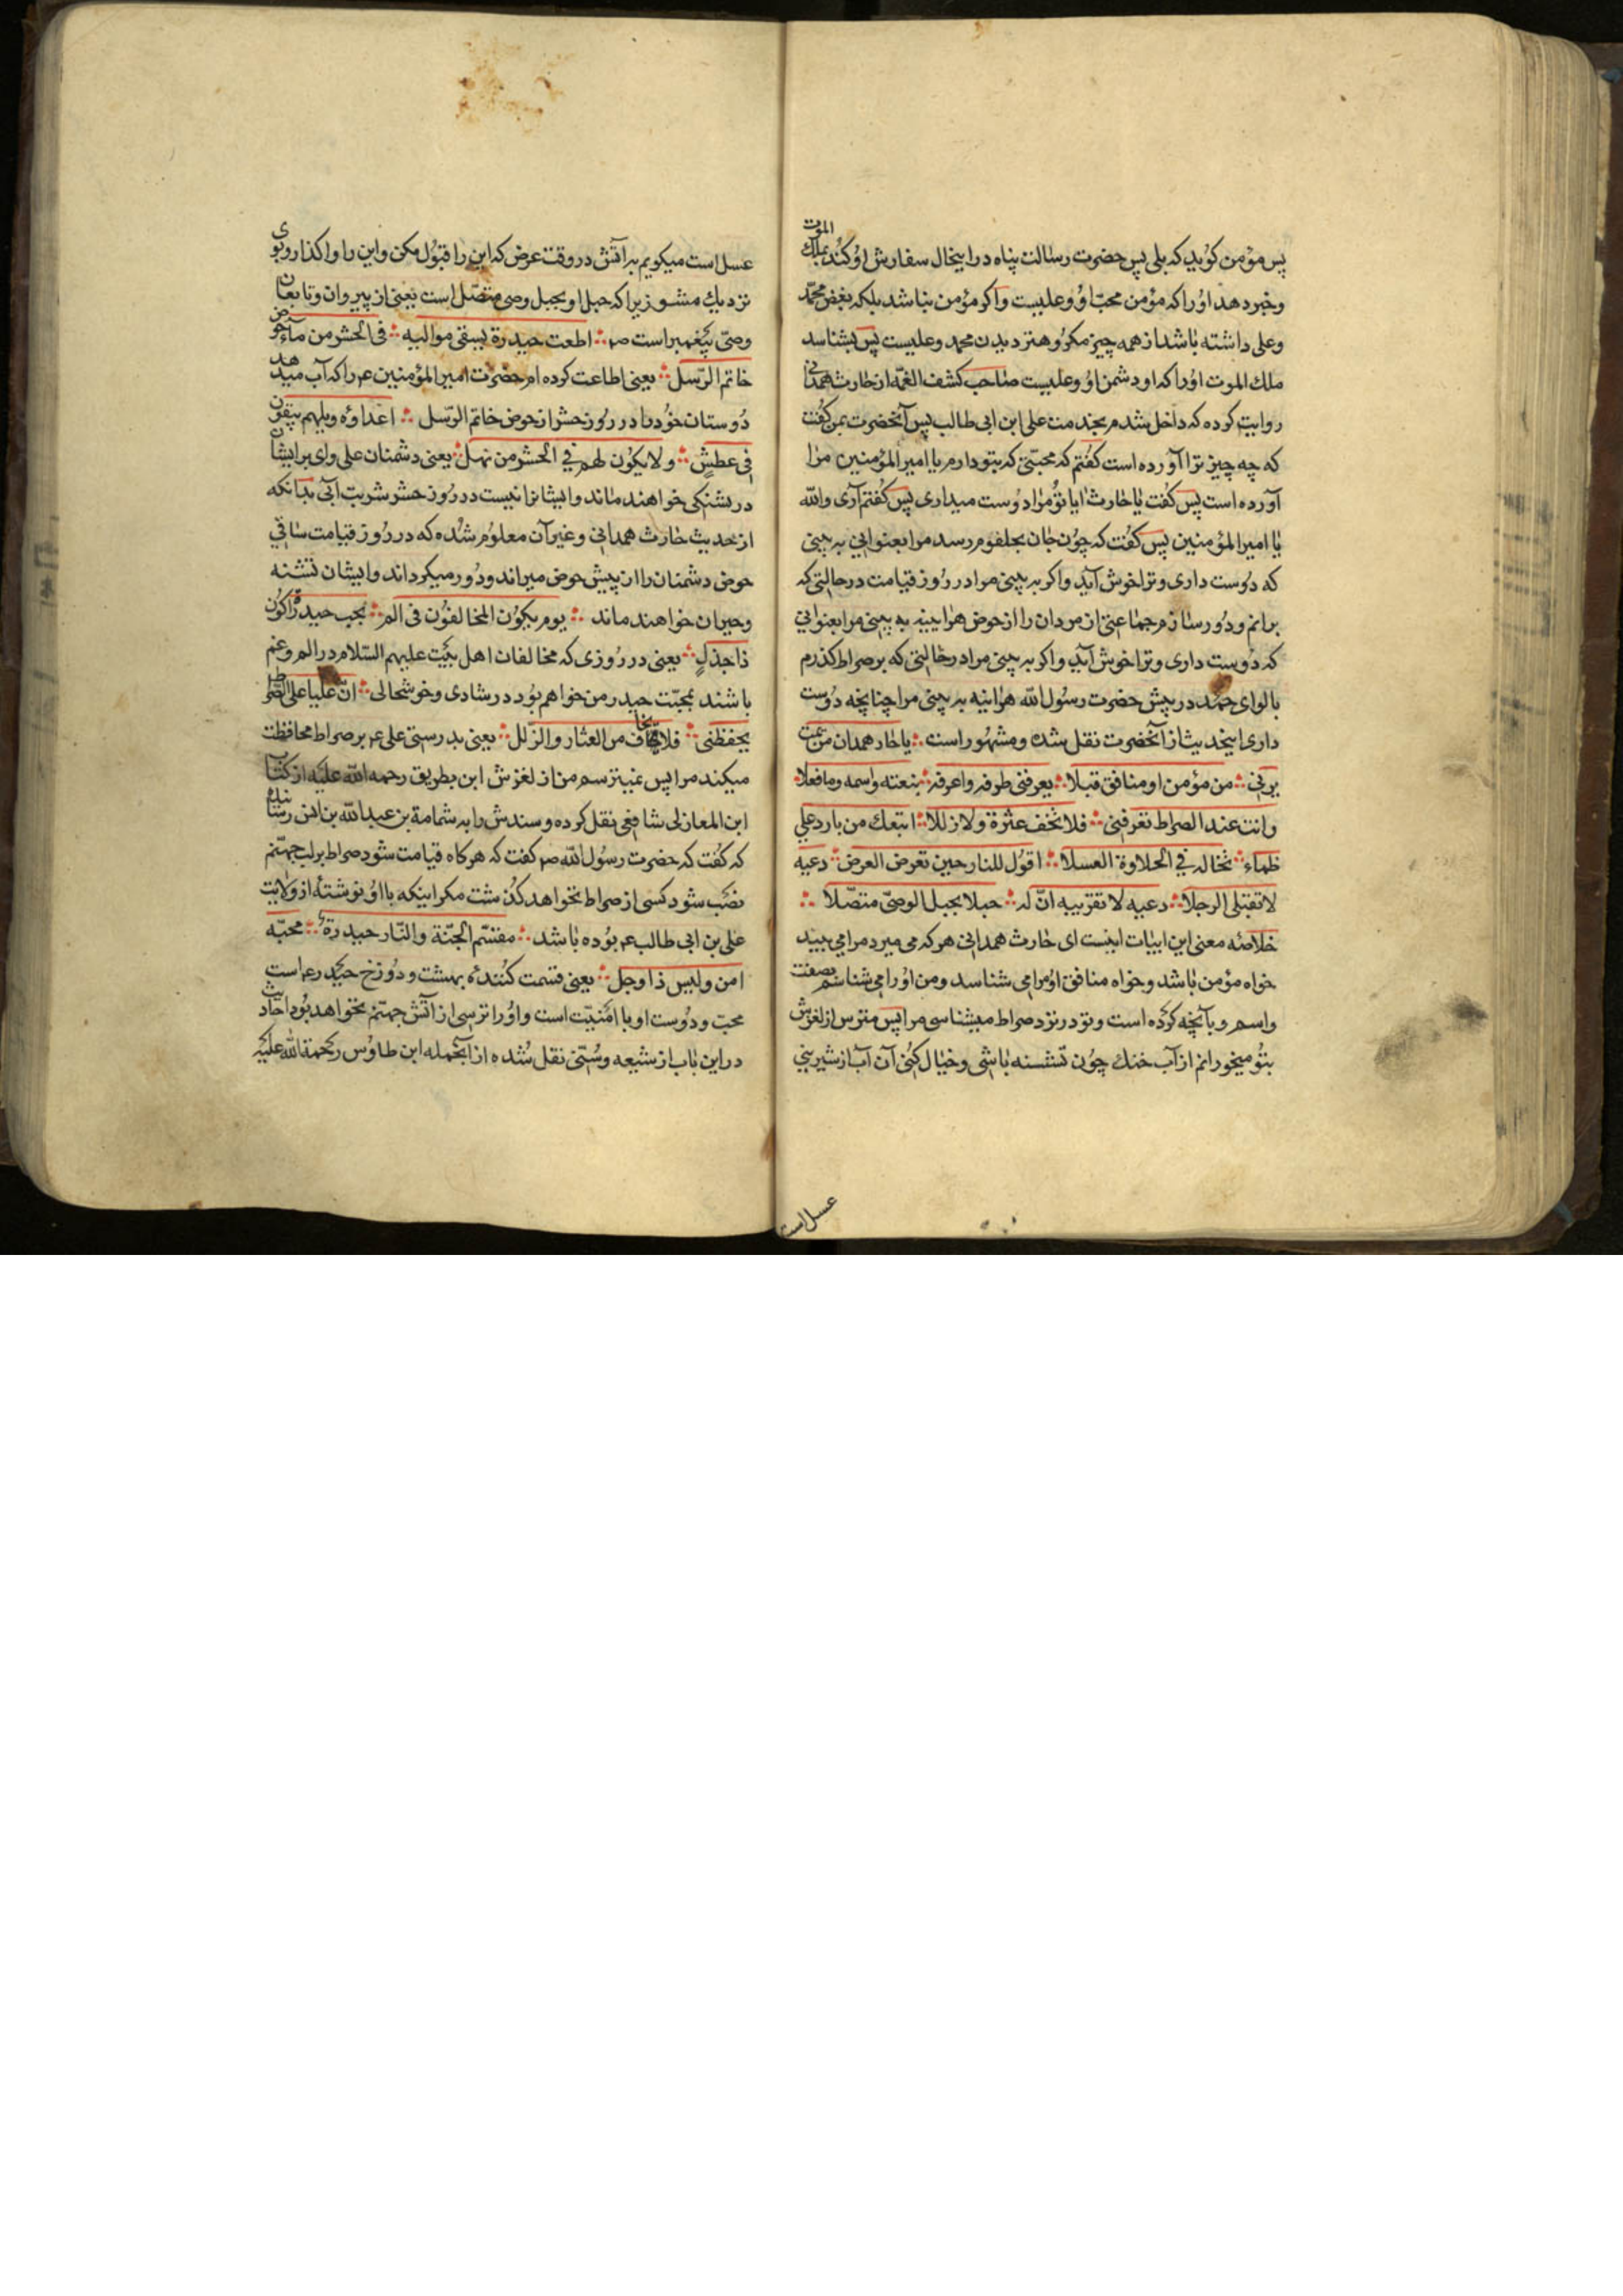 پس مؤمن کوید که بلی پس حضرت رسالت پناه در اینحال سفارش او کند بملك الموت
وخبر دهد او را که مؤمن محبّ او و علیست و اکر مؤمن نباشد بلکه بغض محمّد
وعلی داشته باشد از همه چیز مکروهتر دیدن محمد وعلیست پس بشناسد
ملك الموت او را که او دشمن او و علیست صاحب کشف الغمّه از حارث همدانی
روایت کرده که داخل شدم بخدمت علی ابن ابی طالب پس آنحضرت بمن کفت
که چه چیز ترا آورده است کفتم که محبّتی که بتو دارم یا امیر المؤمنین مرا
آورده است پس کفت یا حارث ایا تو مرا دوست میداری پس کفتم آری والله
یا امیر المؤمنین پس کفت که چون جان بحلقوم رسد مرا بعنوانی به بینی
که دوست داری و ترا خوش آید و اکر به بینی مرا در روز قیامت در حالتی که
برانم و دور سازم جماعتی از مردان را از حوض هراینه به بینی مرا بعنوانی
که دوست داری و ترا خوش آید و اکر به بینی مرا در حالتی که بر صراط کذرم
با لوای حمد در پیش حضرت رسول الله هراینه به بینی مرا چنانچه دوست
داری اینحدیث از آنحضرت نقل شده و مشهور است ؞ یا حار همدان من یمت
یرنی ؞ من مؤمن او منافق قبلا ؞ یعرفنی طرفه واعرفه ؞ بنعته واسمه وما فعلا ؞
وانت عند الصراط تعرفنی ؞ فلا تخف عثرة ولا زللا ؞ اسقیك من بارد علی
ظماء ؞ تخاله فی الحلاوة العسلا ؞ اقول للنار حین تعرض العرض ؞ دعیه
لا تقبلی الرجلا ؞ دعیه لا تقربیه انّ له ؞ حبلا بحبل الوصیّ متصّلا ؞
خلاصه معنی این ابیات اینست ای حارث همدانی هر که می میرد مرا می بیند
خواه مؤمن باشد وخواه منافق او مرا می شناسد ومن او را می شناسم بصفت
واسم و بآنچه کرده است و تو در نزد صراط میشناسی مرا پس مترس از لغزش
بتو میخورانم از آب خنك چون تشنه باشی و خیال کنی آن آب از شیرینی
عسل است
عسل است میکویم به آتش در وقت عرض که این را قبول مکن واین را واکذار و بوی
نزدیك مشو زیرا که حبل او بحبل وصی متصّل است یعنی از پیروان و تابعان
وصیّ پیغمبر است ص ؞ اطعت حیدرة یسقی موالیه ؞ فی الحشر من مآء حوض
خاتم الرّسل ؞ یعنی اطاعت کرده ام حضرت امیر المؤمنین ع را که آب میدهد
دوستان خود را در روز حشر از حوض خاتم الرّسل ؞ اعداؤه ویلهم یبقون
فی عطش ؞ ولا یکون لهم فی الحشر من نهل ؞ یعنی دشمنان علی وای بر ایشان
در تشنکی خواهند ماند و ایشانرا نیست در روز حشر شربت آبی بدانکه
از حدیث حارث همدانی و غیر آن معلوم شده که در روز قیامت ساقی
حوض دشمنان را از پیش حوض میراند و دور میکرداند و ایشان تشنه
وحیران خواهند ماند ؞ یوم یکون المخالفون فی الم ؞ بحب حیدر اکون
ذا جذل ؞ یعنی در روزی که مخالفان اهل بیت علیهم السّلام در الم وغم
باشند بمحبّت حیدر من خواهم بود در شادی و خوشحالی ؞ انّ علیا علی الصّراط
یحفظنی ؞ فلا اخاف من العثار والزّلل ؞ یعنی بدرستی علی ع بر صراط محافظت
میکند مرا پس نمیترسم من از لغزش ابن بطریق رحمه الله علیه از کتاب
ابن المغازلی شافعی نقل کرده و سندش را به ثمامة بن عبد الله بن انس رسانده
که کفت که حضرت رسول الله ص کفت که هر کاه قیامت شود صراط بر لب جهنّم
نصب شود کسی از صراط نخواهد کذشت مکر اینکه با او نوشتهٔ از ولایت
علی بن ابی طالب ع بوده باشد ؞ مقسّم الجنّة والنّار حیدرة ؞ محبّه
امن ولیس ذا وجل ؞ یعنی قسمت کننده بهشت و دوزخ حیدر ع است
محبّ و دوست او با امنیّت است و او را ترسی از آتش جهنّم نخواهد بود احادیث
در این باب از شیعه وسُنّی نقل شده از آنجمله ابن طاوس رحمة الله علیه